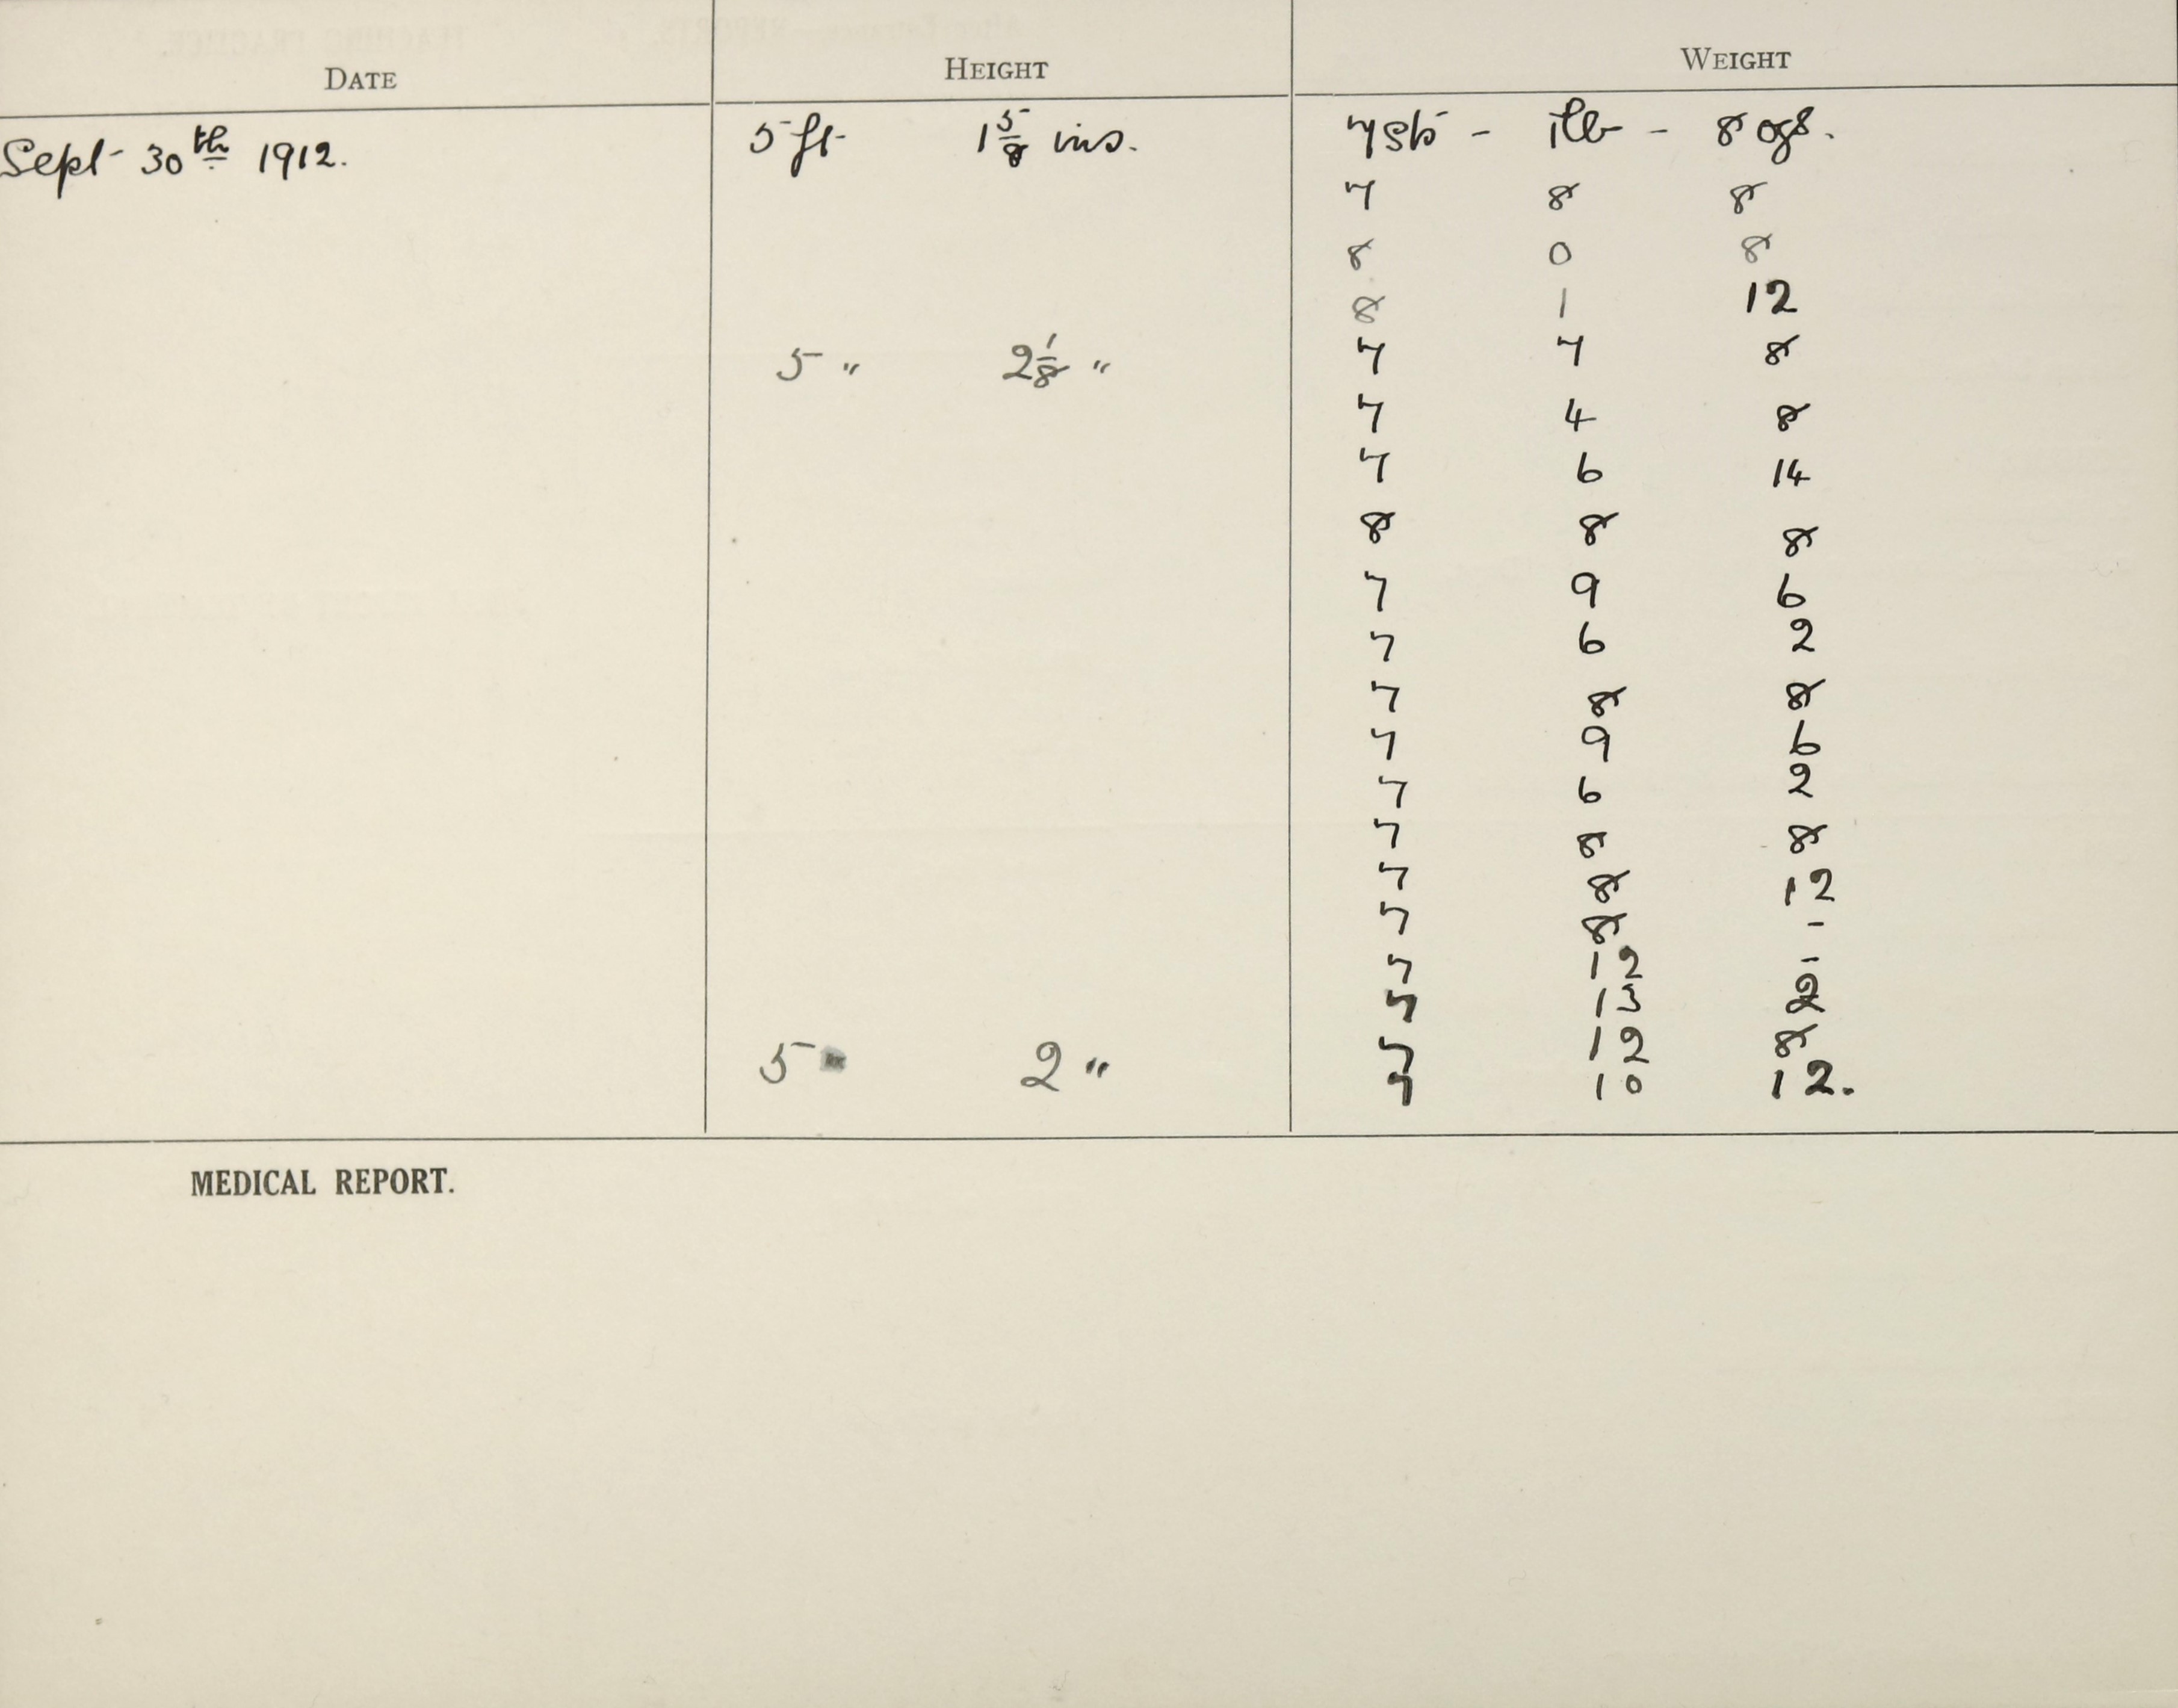 DATE HEIGHT WEIGHT
Sept 30th 1912. 5 ft 1 5/8 ins. 7 st - 1 lb - 8 ozs.
7 8 8
8 0 8
8 1 12
5 " 2 1/8 " 7 7 8
7 4 8
7 6 14
8 8 8
7 9 6
7 6 2
7 8 8
7 9 6
7 6 2
7 8 8
7 8 12
7 8 -
7 12 -
7 13 2
7 12 8
5 2 " 7 10 12.
MEDICAL REPORT.